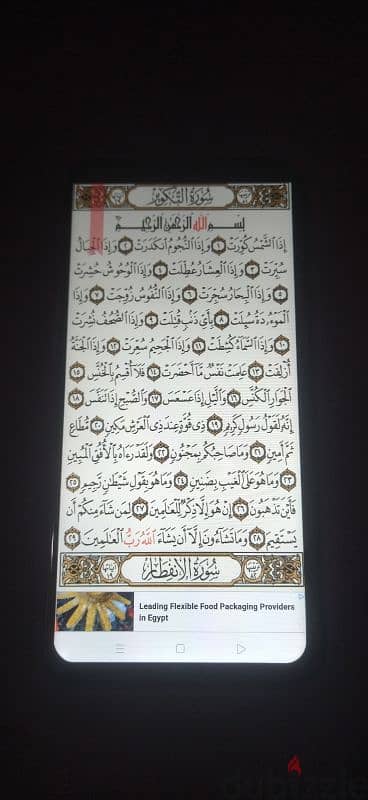 سورة التكوير
بسم الله الرحمن الرحيم
إِذَا الشَّمْسُ كُوِّرَتْ ١ وَإِذَا النُّجُومُ انكَدَرَتْ ٢ وَإِذَا الْجِبَالُ
سُيِّرَتْ ٣ وَإِذَا الْعِشَارُ عُطِّلَتْ ٤ وَإِذَا الْوُحُوشُ حُشِرَتْ
٥ وَإِذَا الْبِحَارُ سُجِّرَتْ ٦ وَإِذَا النُّفُوسُ زُوِّجَتْ ٧ وَإِذَا
الْمَوْءُدَةُ سُئِلَتْ ٨ بِأَيِّ ذَنبٍ قُتِلَتْ ٩ وَإِذَا الصُّحُفُ نُشِرَتْ
١٠ وَإِذَا السَّمَاءُ كُشِطَتْ ١١ وَإِذَا الْجَحِيمُ سُعِّرَتْ ١٢ وَإِذَا الْجَنَّةُ
أُزْلِفَتْ ١٣ عَلِمَتْ نَفْسٌ مَّا أَحْضَرَتْ ١٤ فَلَا أُقْسِمُ بِالْخُنَّسِ ١٥
الْجَوَارِ الْكُنَّسِ ١٦ وَاللَّيْلِ إِذَا عَسْعَسَ ١٧ وَالصُّبْحِ إِذَا تَنَفَّسَ ١٨
إِنَّهُ لَقَوْلُ رَسُولٍ كَرِيمٍ ١٩ ذِي قُوَّةٍ عِندَ ذِي الْعَرْشِ مَكِينٍ ٢٠ مُّطَاعٍ
ثَمَّ أَمِينٍ ٢١ وَمَا صَاحِبُكُم بِمَجْنُونٍ ٢٢ وَلَقَدْ رَءَاهُ بِالْأُفُقِ الْمُبِينِ
٢٣ وَمَا هُوَ عَلَى الْغَيْبِ بِضَنِينٍ ٢٤ وَمَا هُوَ بِقَوْلِ شَيْطَانٍ رَّجِيمٍ ٢٥
فَأَيْنَ تَذْهَبُونَ ٢٦ إِنْ هُوَ إِلَّا ذِكْرٌ لِّلْعَالَمِينَ ٢٧ لِمَن شَاءَ مِنكُمْ أَن
يَسْتَقِيمَ ٢٨ وَمَا تَشَاءُونَ إِلَّا أَن يَشَاءَ اللَّهُ رَبُّ الْعَالَمِينَ ٢٩
سورة الانفطار
Leading Flexible Food Packaging Providers
in Egypt
dubizzle